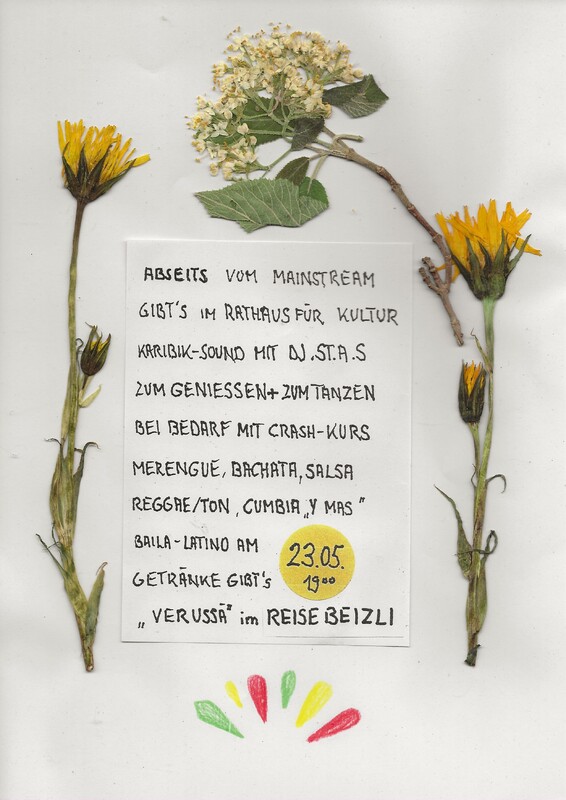 ABSEITS VOM MAINSTREAM
GIBT'S IM RATHAUS FÜR KULTUR
KARIBIK-SOUND MIT DJ.ST.A.S
ZUM GENIESSEN + ZUM TANZEN
BEI BEDARF MIT CRASH-KURS
MERENGUE, BACHATA, SALSA
REGGAE/TON, CUMBIA „Y MAS"
BAILA-LATINO AM
23.05.
19⁰⁰
GETRÄNKE GIBT'S
„VERUSSÄ" im REISEBEIZLI